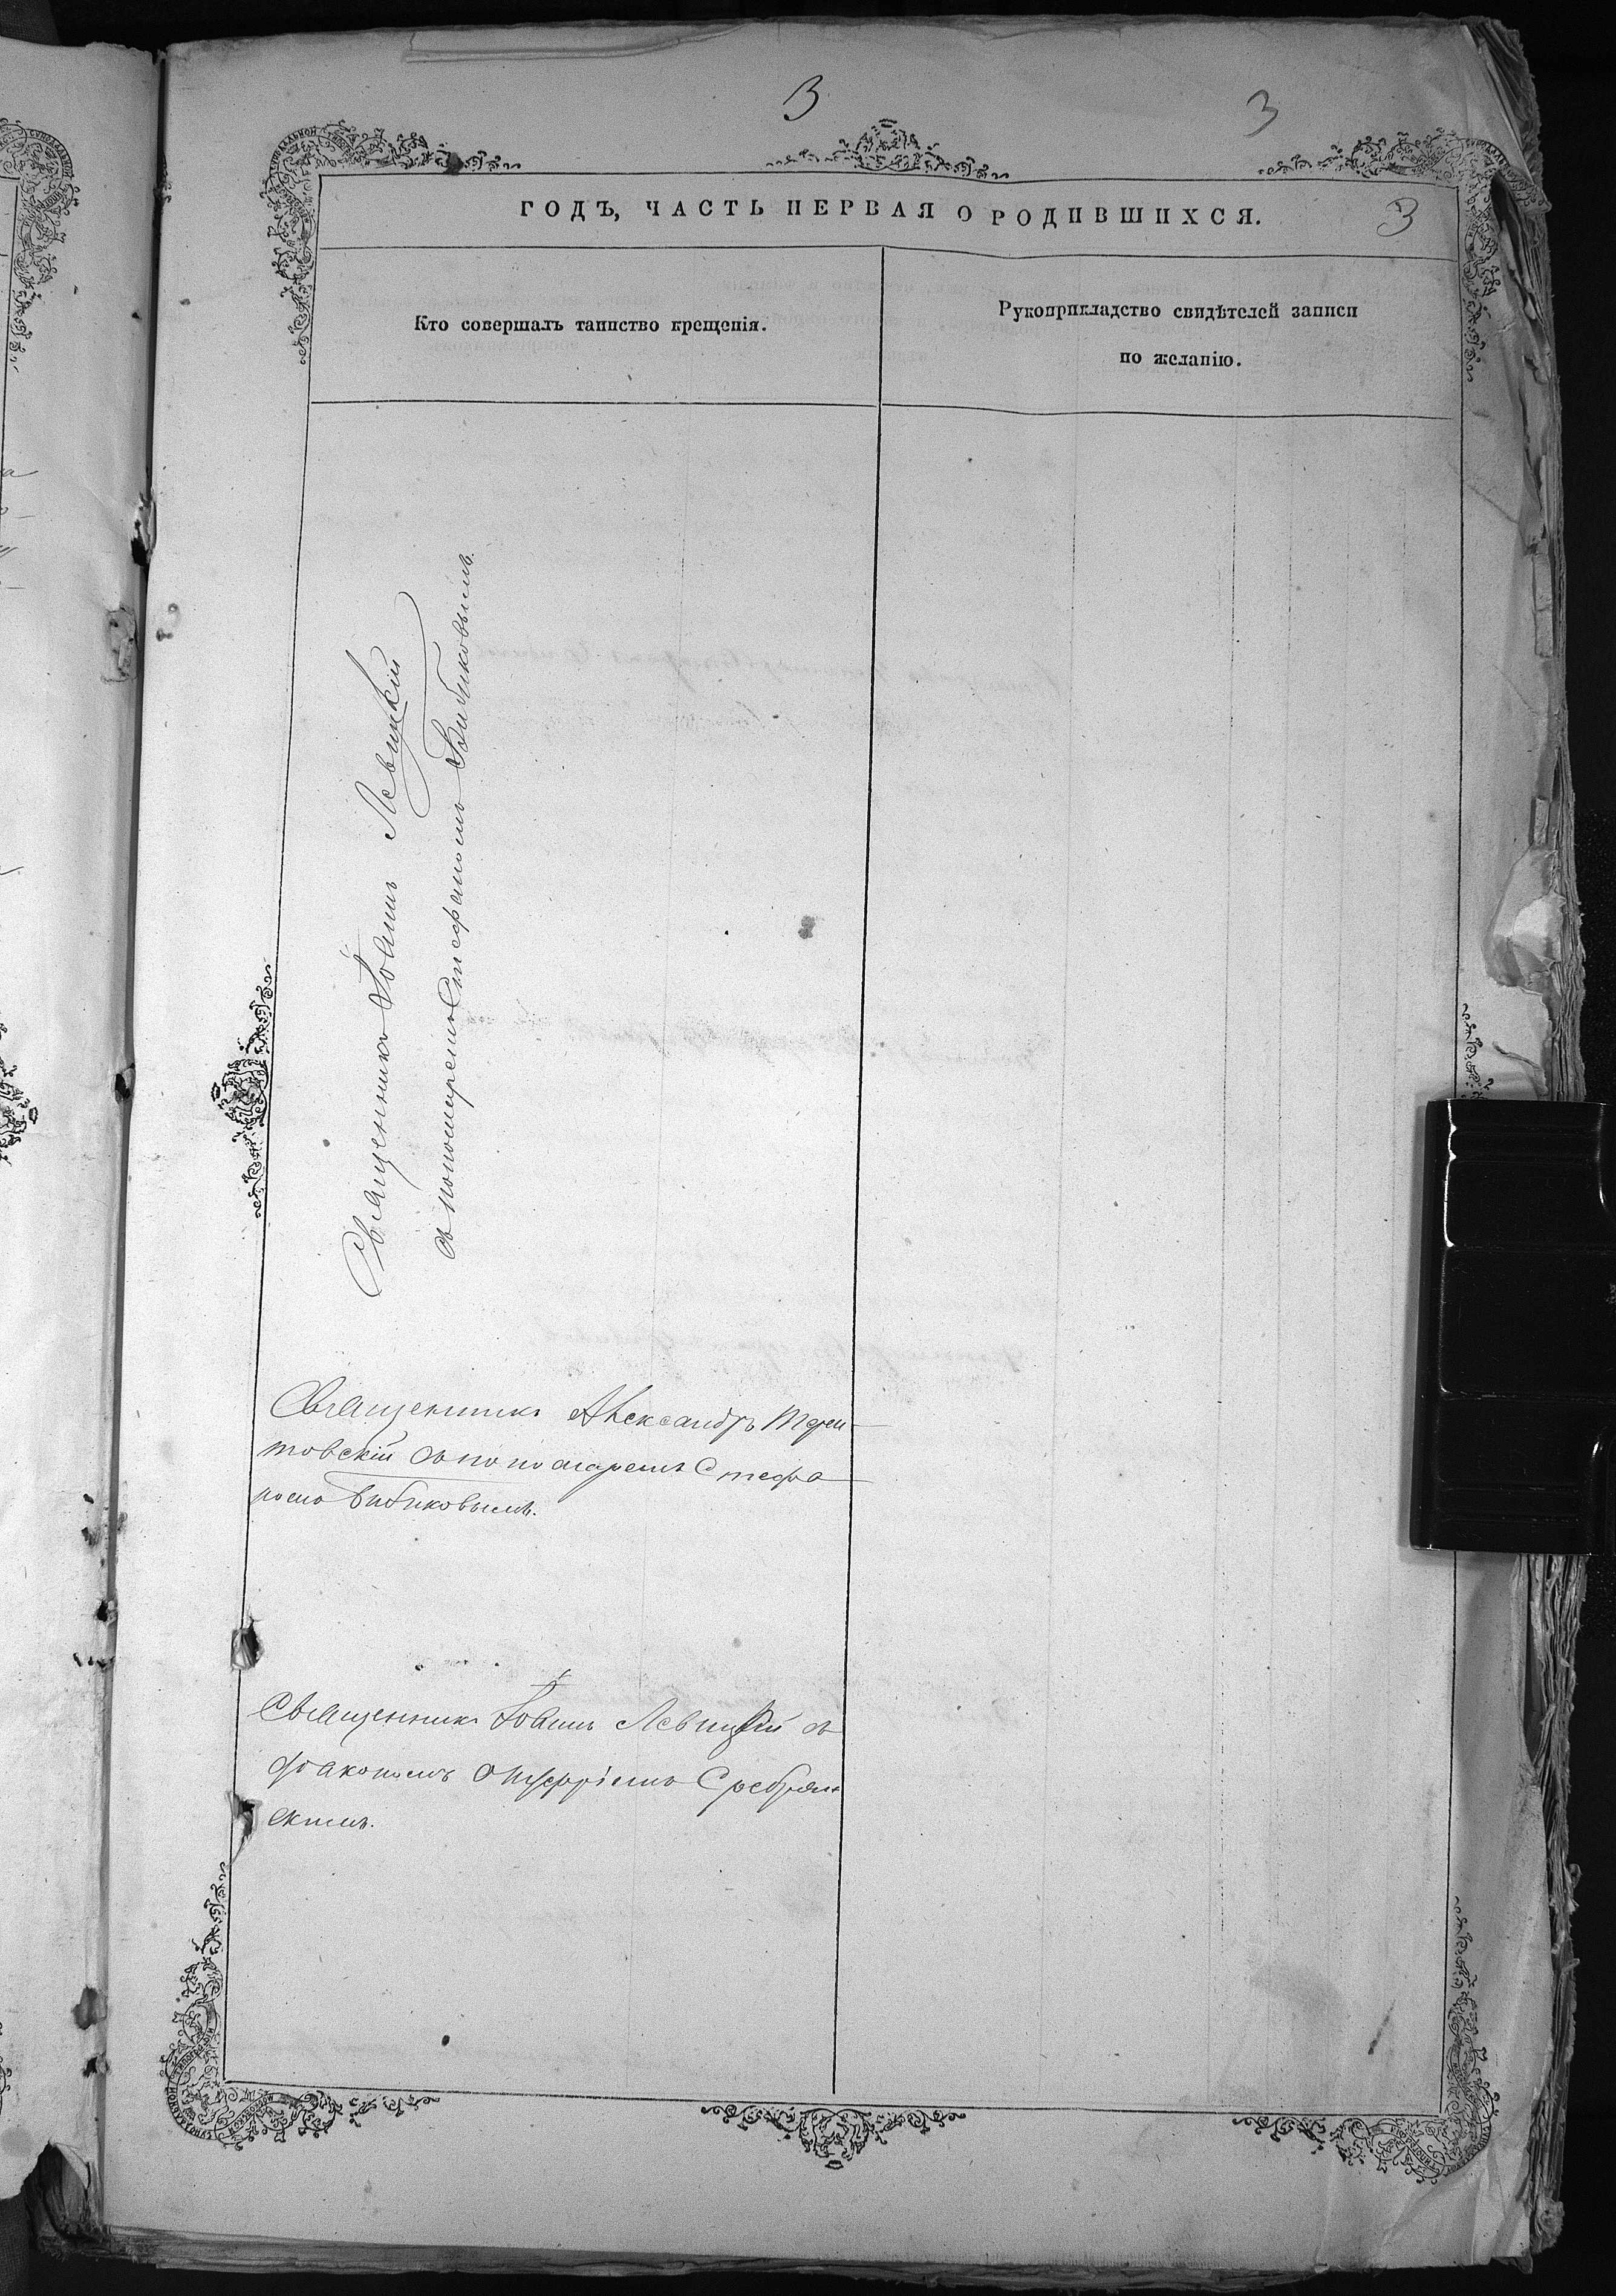 3
3
ГОДЪ, ЧАСТЬ ПЕРВАЯ О РОДИВШИХСЯ.
3
Кто совершалъ таинство крещенія.
Рукоприкладство свидѣтелей записи
по желанію.
Священникъ Іоаннъ Левицкій
съ пономаремъ Стефаномъ Бибиковымъ.
Священникъ Александръ
товскій съ пономаремъ Стефа
номъ Бибиковымъ.
Священникъ Іоаннъ Левицкій съ
діакономъ Сребрян
скимъ.